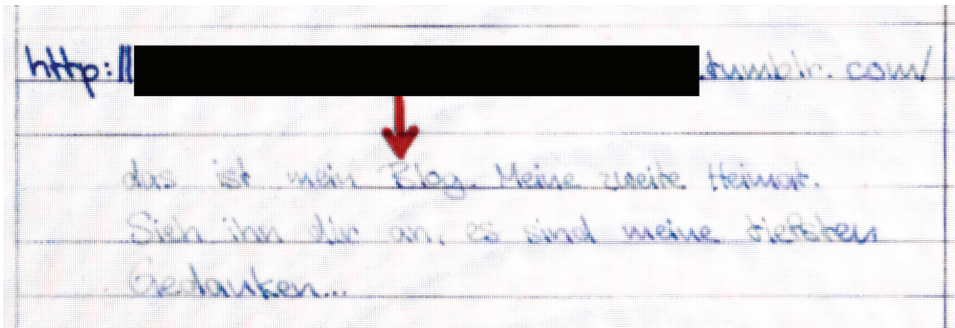 http://.tumblr.com/
das ist mein Blog. Meine zweite Heimat.
Sieh ihn dir an, es sind meine tiefsten
Gedanken...